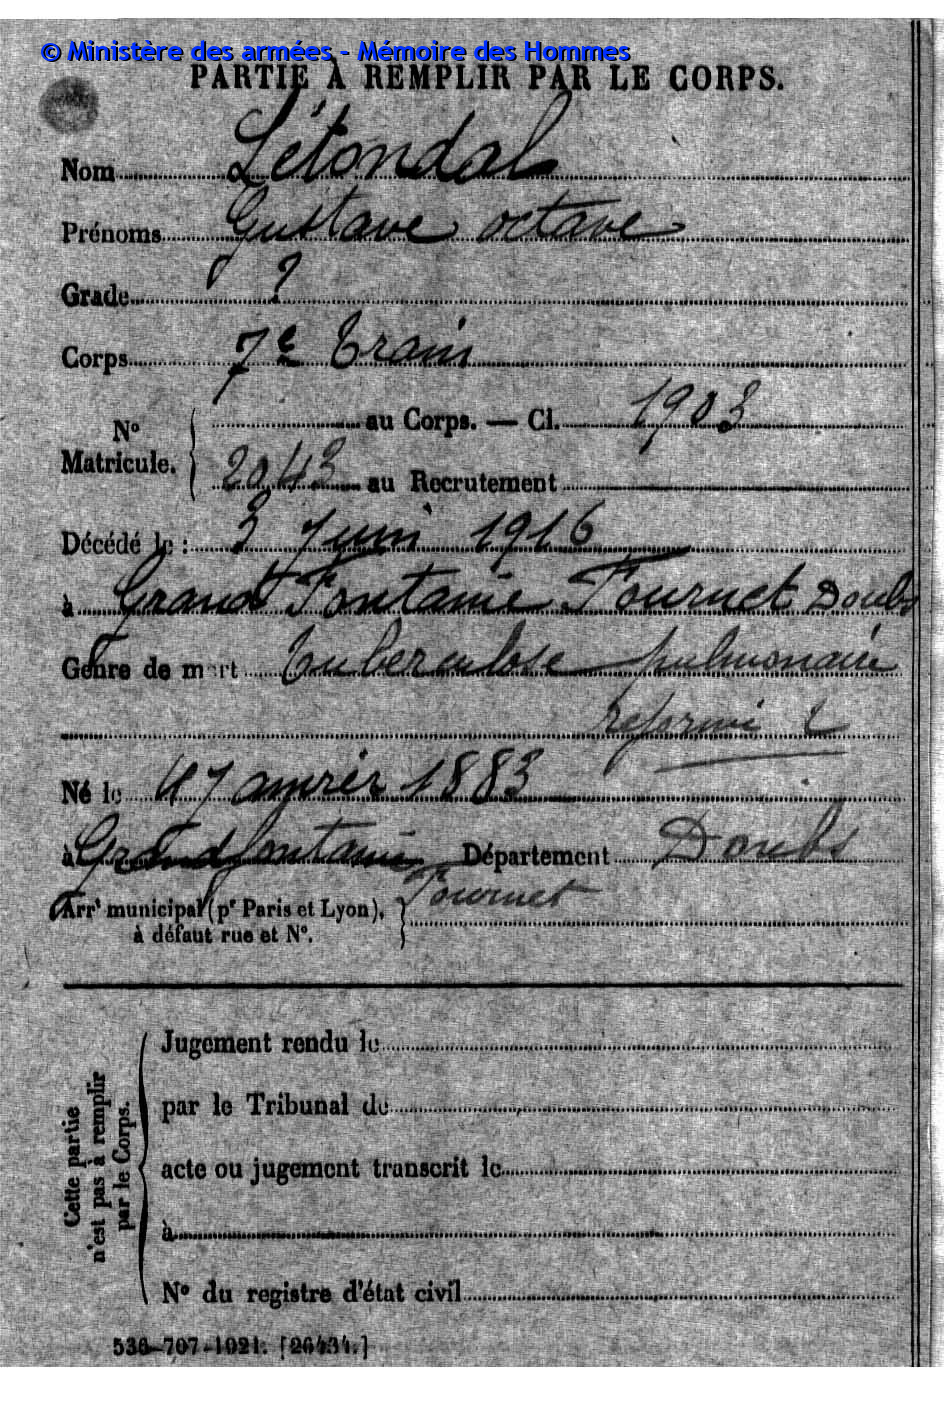 © Ministère des armées - Mémoire des Hommes
PARTIE À REMPLIR PAR LE CORPS.
Nom Létondal
Prénoms Gustave octave
Grade ?
Corps 7e Train
No Matricule. { au Corps. — Cl. 1903
2043 au Recrutement
Décédé le : 3 Juin 1916
à Grand Fontaine Fournet Doubs
Genre de mort Tuberculose pulmonaire
réformé 2
Né le 17 janvier 1883
à Grandfontaine Département Doubs
Fournet
Arrt municipal (pr Paris et Lyon),
à défaut rue et No.
Cette partie
n'est pas à remplir
par le Corps.
Jugement rendu le
par le Tribunal de
acte ou jugement transcrit le
à
No du registre d'état civil
536-707-1921. [26434.]